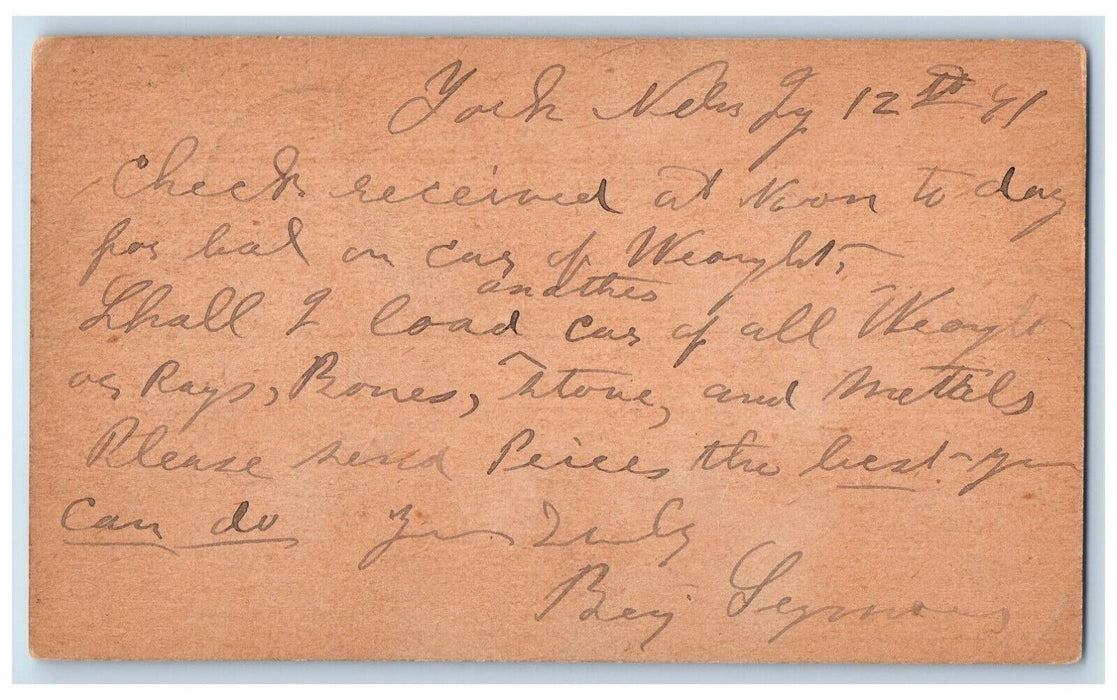 York Neb 12th 91
Check received at Noon to day
for bal on car of Wrought,
Shall I load another car of all Wrought
or Rags, Bones, Stove, and Mettels
Please send Prices the best you
can do Yrs Truly
Benj Seymour